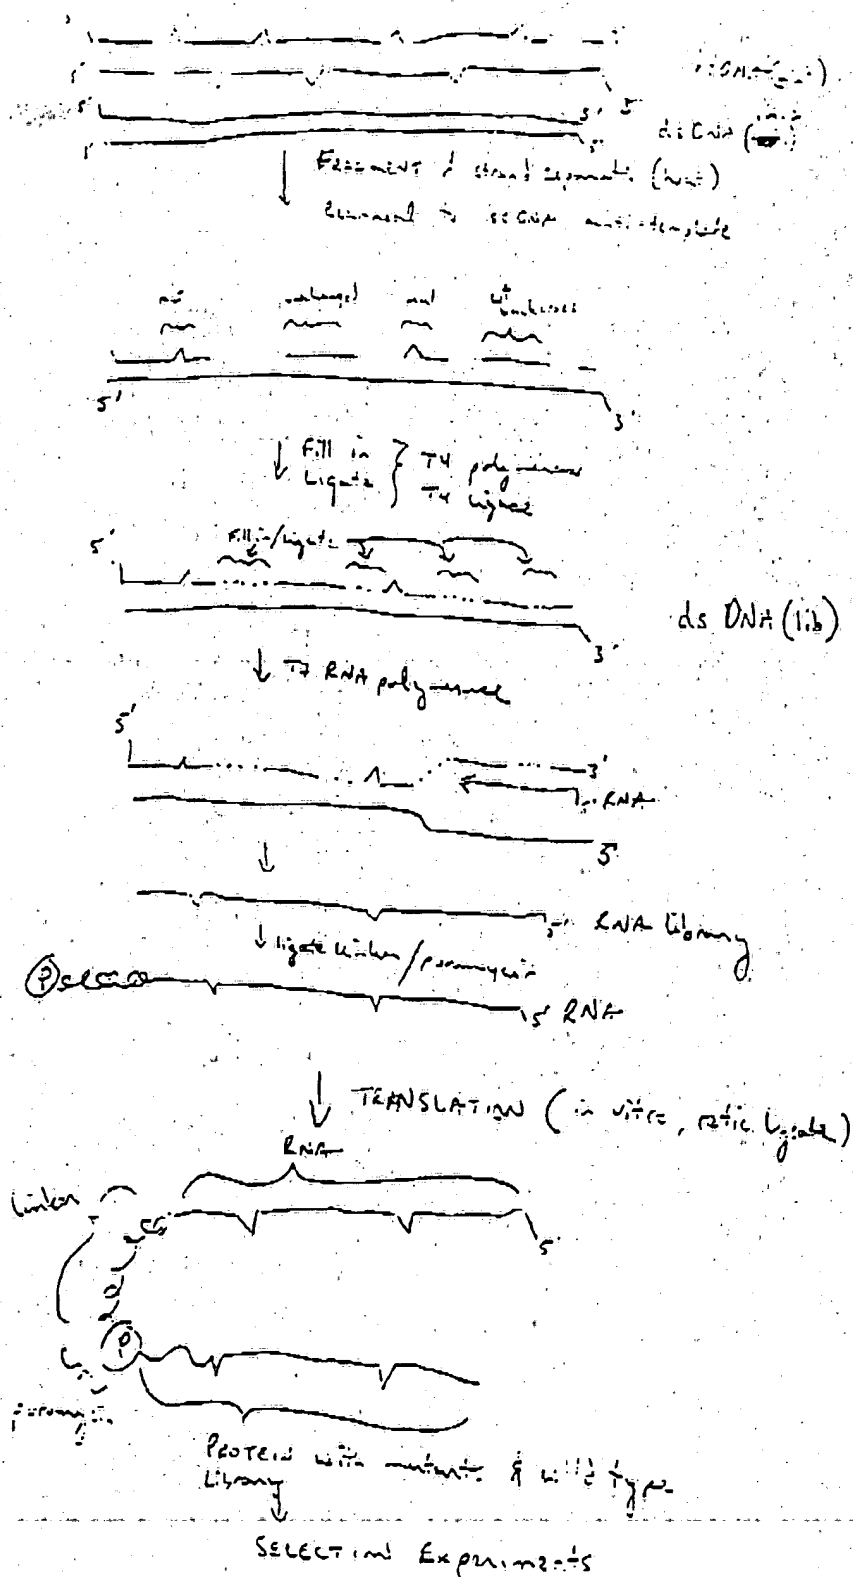 5'
3'
5'
ds DNA
FRAGMENT & strand separation (heat)
to ssDNA anti-template
mut unchanged mut wt
5'
3'
Fill in
Ligate
T4 polymerase
T4 ligase
5'
Fill in/ligate
ds DNA (lib)
3'
↓ T7 RNA polymerase
5'
3'
RNA
5'
5' RNA library
↓ ligate linker/puromycin
P
5' RNA
TRANSLATION (in vitro, retic lysate)
RNA
linker
5'
P
puromycin
PROTEIN with mutants & wild type
Library
SELECTION Experiments